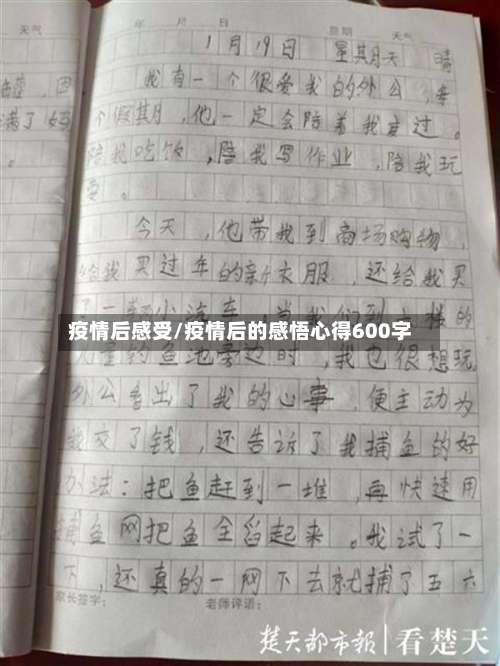 天气
年 月 日 星期 天气
1月19日 星其月天 晴
我有一个很爱我的外公,每
个假其月,他一定会陪着我度过。
陪我吃饭,陪我写作业,陪我玩
耍。
今天,他带我到商场购物,
给我买过年的新衣服,还给我买
疫情后感受/疫情后的感悟心得600字
儿童钓鱼池旁边时,我也很想玩
外公看出了我的心事,便主动为
我交了钱,还告诉了我捕鱼的好
办法:把鱼赶到一堆,再快速用
捕鱼网把鱼全舀起来。我试了一
下,还真的一网下去就捕了五六
家长签字: 老师评语:
楚天都市报 | 看楚天